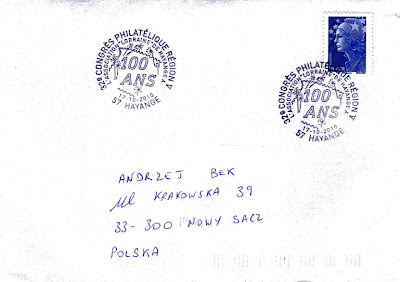 32e CONGRÈS PHILATÉLIQUE RÉGION V
L'ASSOCIATION LORRAINE DE HAYANGE A
100
ANS
17-10-2010
57 HAYANGE
32e CONGRÈS PHILATÉLIQUE RÉGION V
L'ASSOCIATION LORRAINE DE HAYANGE A
100
ANS
17-10-2010
57 HAYANGE
ANDRZEJ BEK
ul KRAKOWSKA 39
33-300 NOWY SACZ
POLSKA